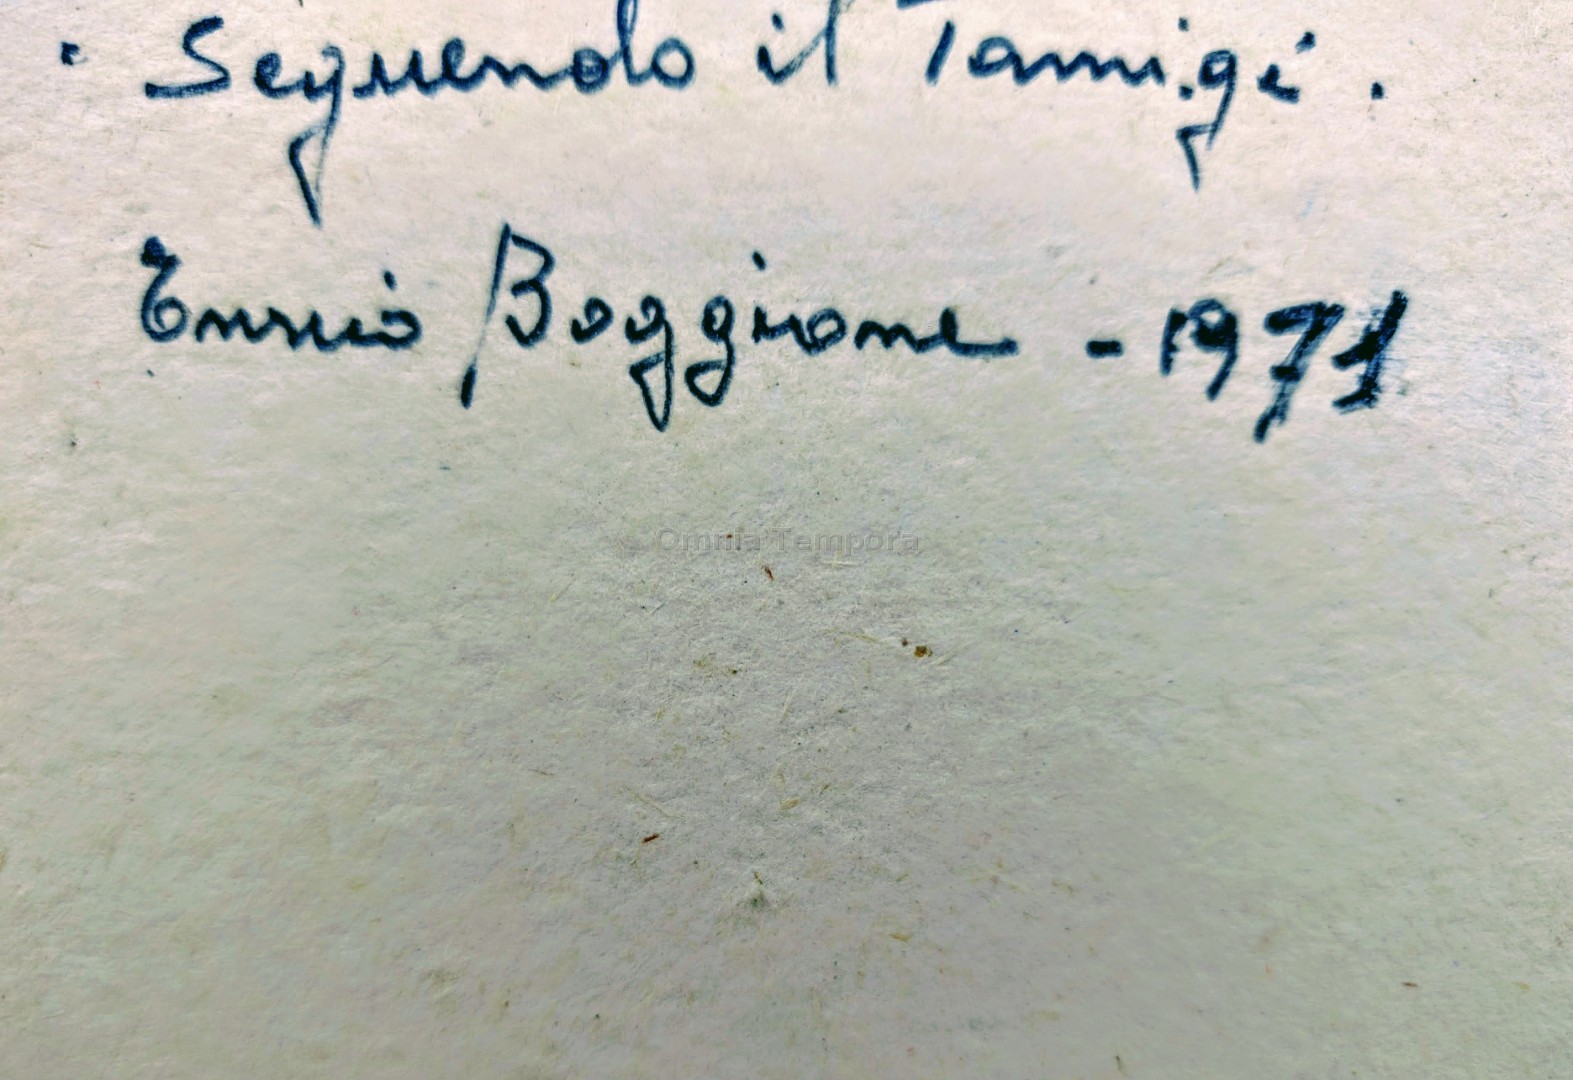 . Seguendo il Tamigi .
Ennio Boggione - 1971
Omnia Tempora